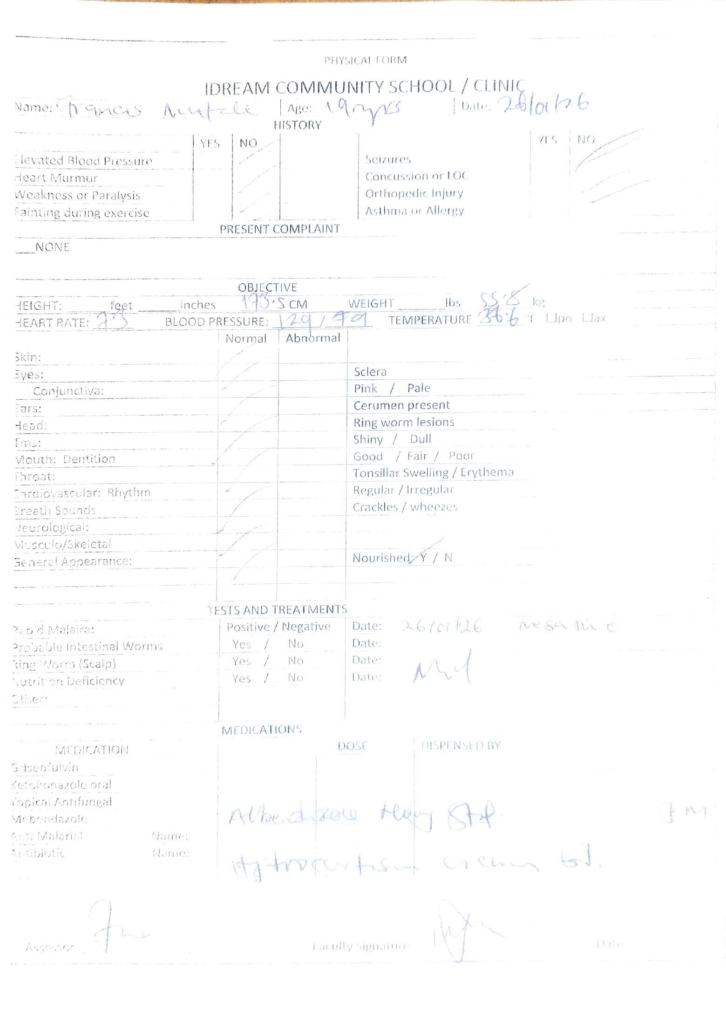 PHYSICAL FORM
IDREAM COMMUNITY SCHOOL / CLINIC
Name: Francis Age: 19 yrs Date: 26/01/26
HISTORY
YES NO YES NO
Elevated Blood Pressure Seizures
Heart Murmur Concussion or LOC
Weakness or Paralysis Orthopedic Injury
Fainting during exercise Asthma or Allergy
PRESENT COMPLAINT
___NONE
OBJECTIVE
HEIGHT: ____ feet ____ inches 173.5 CM WEIGHT ____ lbs 55.8 kg
HEART RATE: BLOOD PRESSURE: 129 / 79 TEMPERATURE 36.6 F
Normal Abnormal
Skin:
Eyes: Sclera
Conjunctiva: Pink / Pale
Ears: Cerumen present
Head: Ring worm lesions
Shiny / Dull
Mouth: Dentition Good / Fair / Poor
Throat: Tonsillar Swelling / Erythema
Cardiovascular: Rhythm Regular / Irregular
Breath Sounds Crackles / wheezes
Neurological:
Musculo/Skeletal
General Appearance: Nourished Y / N
TESTS AND TREATMENTS
Rapid Malaira: Positive / Negative Date: 26/01/26 Negative
Probable Intestinal Worms Yes / No Date:
Ring Worm (Scalp) Yes / No Date:
Nutrition Deficiency Yes / No Date:
Other:
MEDICATIONS
MEDICATION DOSE DISPENSED BY
Griseofulvin
Ketoconazole oral
Topical Antifungal
Mebendazole
Anti Malarial Name:
Antibiotic Name:
Hydrocortisone cream bd.
Assessor Faculty Signature Date